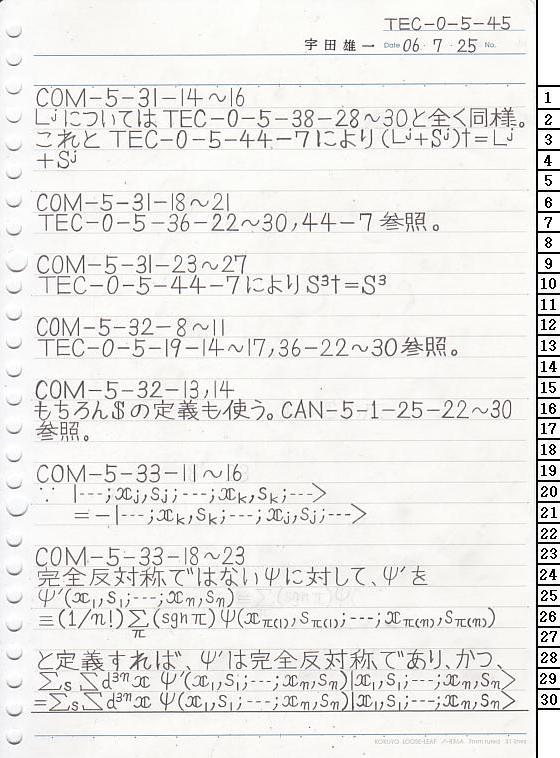 TEC-0-5-45
宇田雄一 Date 06・7・25 No.
COM-5-31-14～16
Lʲについては TEC-0-5-38-28～30と全く同様。
これと TEC-0-5-44-7により (Lʲ+Sʲ)†=Lʲ
+Sʲ
COM-5-31-18～21
TEC-0-5-36-22～30,44-7参照。
COM-5-31-23～27
TEC-0-5-44-7により S³†=S³
COM-5-32-8～11
TEC-0-5-19-14～17,36-22～30参照。
COM-5-32-13,14
もちろん$の定義も使う。CAN-5-1-25-22～30
参照。
COM-5-33-11～16
∵ |---;xⱼ,sⱼ;---;xₖ,sₖ;--->
=-|---;xₖ,sₖ;---;xⱼ,sⱼ;--->
COM-5-33-18～23
完全反対称ではないψに対して、ψ′を
ψ′(x₁,s₁;---;xₙ,sₙ)
≡(1/n!)∑π(sgnπ)ψ(xπ(1),sπ(1);---;xπ(n),sπ(n))
と定義すれば、ψ′は完全反対称であり、かつ、
∑s∑d³ⁿx ψ′(x₁,s₁;---;xₙ,sₙ)|x₁,s₁;---;xₙ,sₙ>
=∑s∑d³ⁿx ψ(x₁,s₁;---;xₙ,sₙ)|x₁,s₁;---;xₙ,sₙ>
KOKUYO LOOSE-LEAF ノ-836A 7mm ruled 31 lines
1
2
3
4
5
6
7
8
9
10
11
12
13
14
15
16
17
18
19
20
21
22
23
24
25
26
27
28
29
30